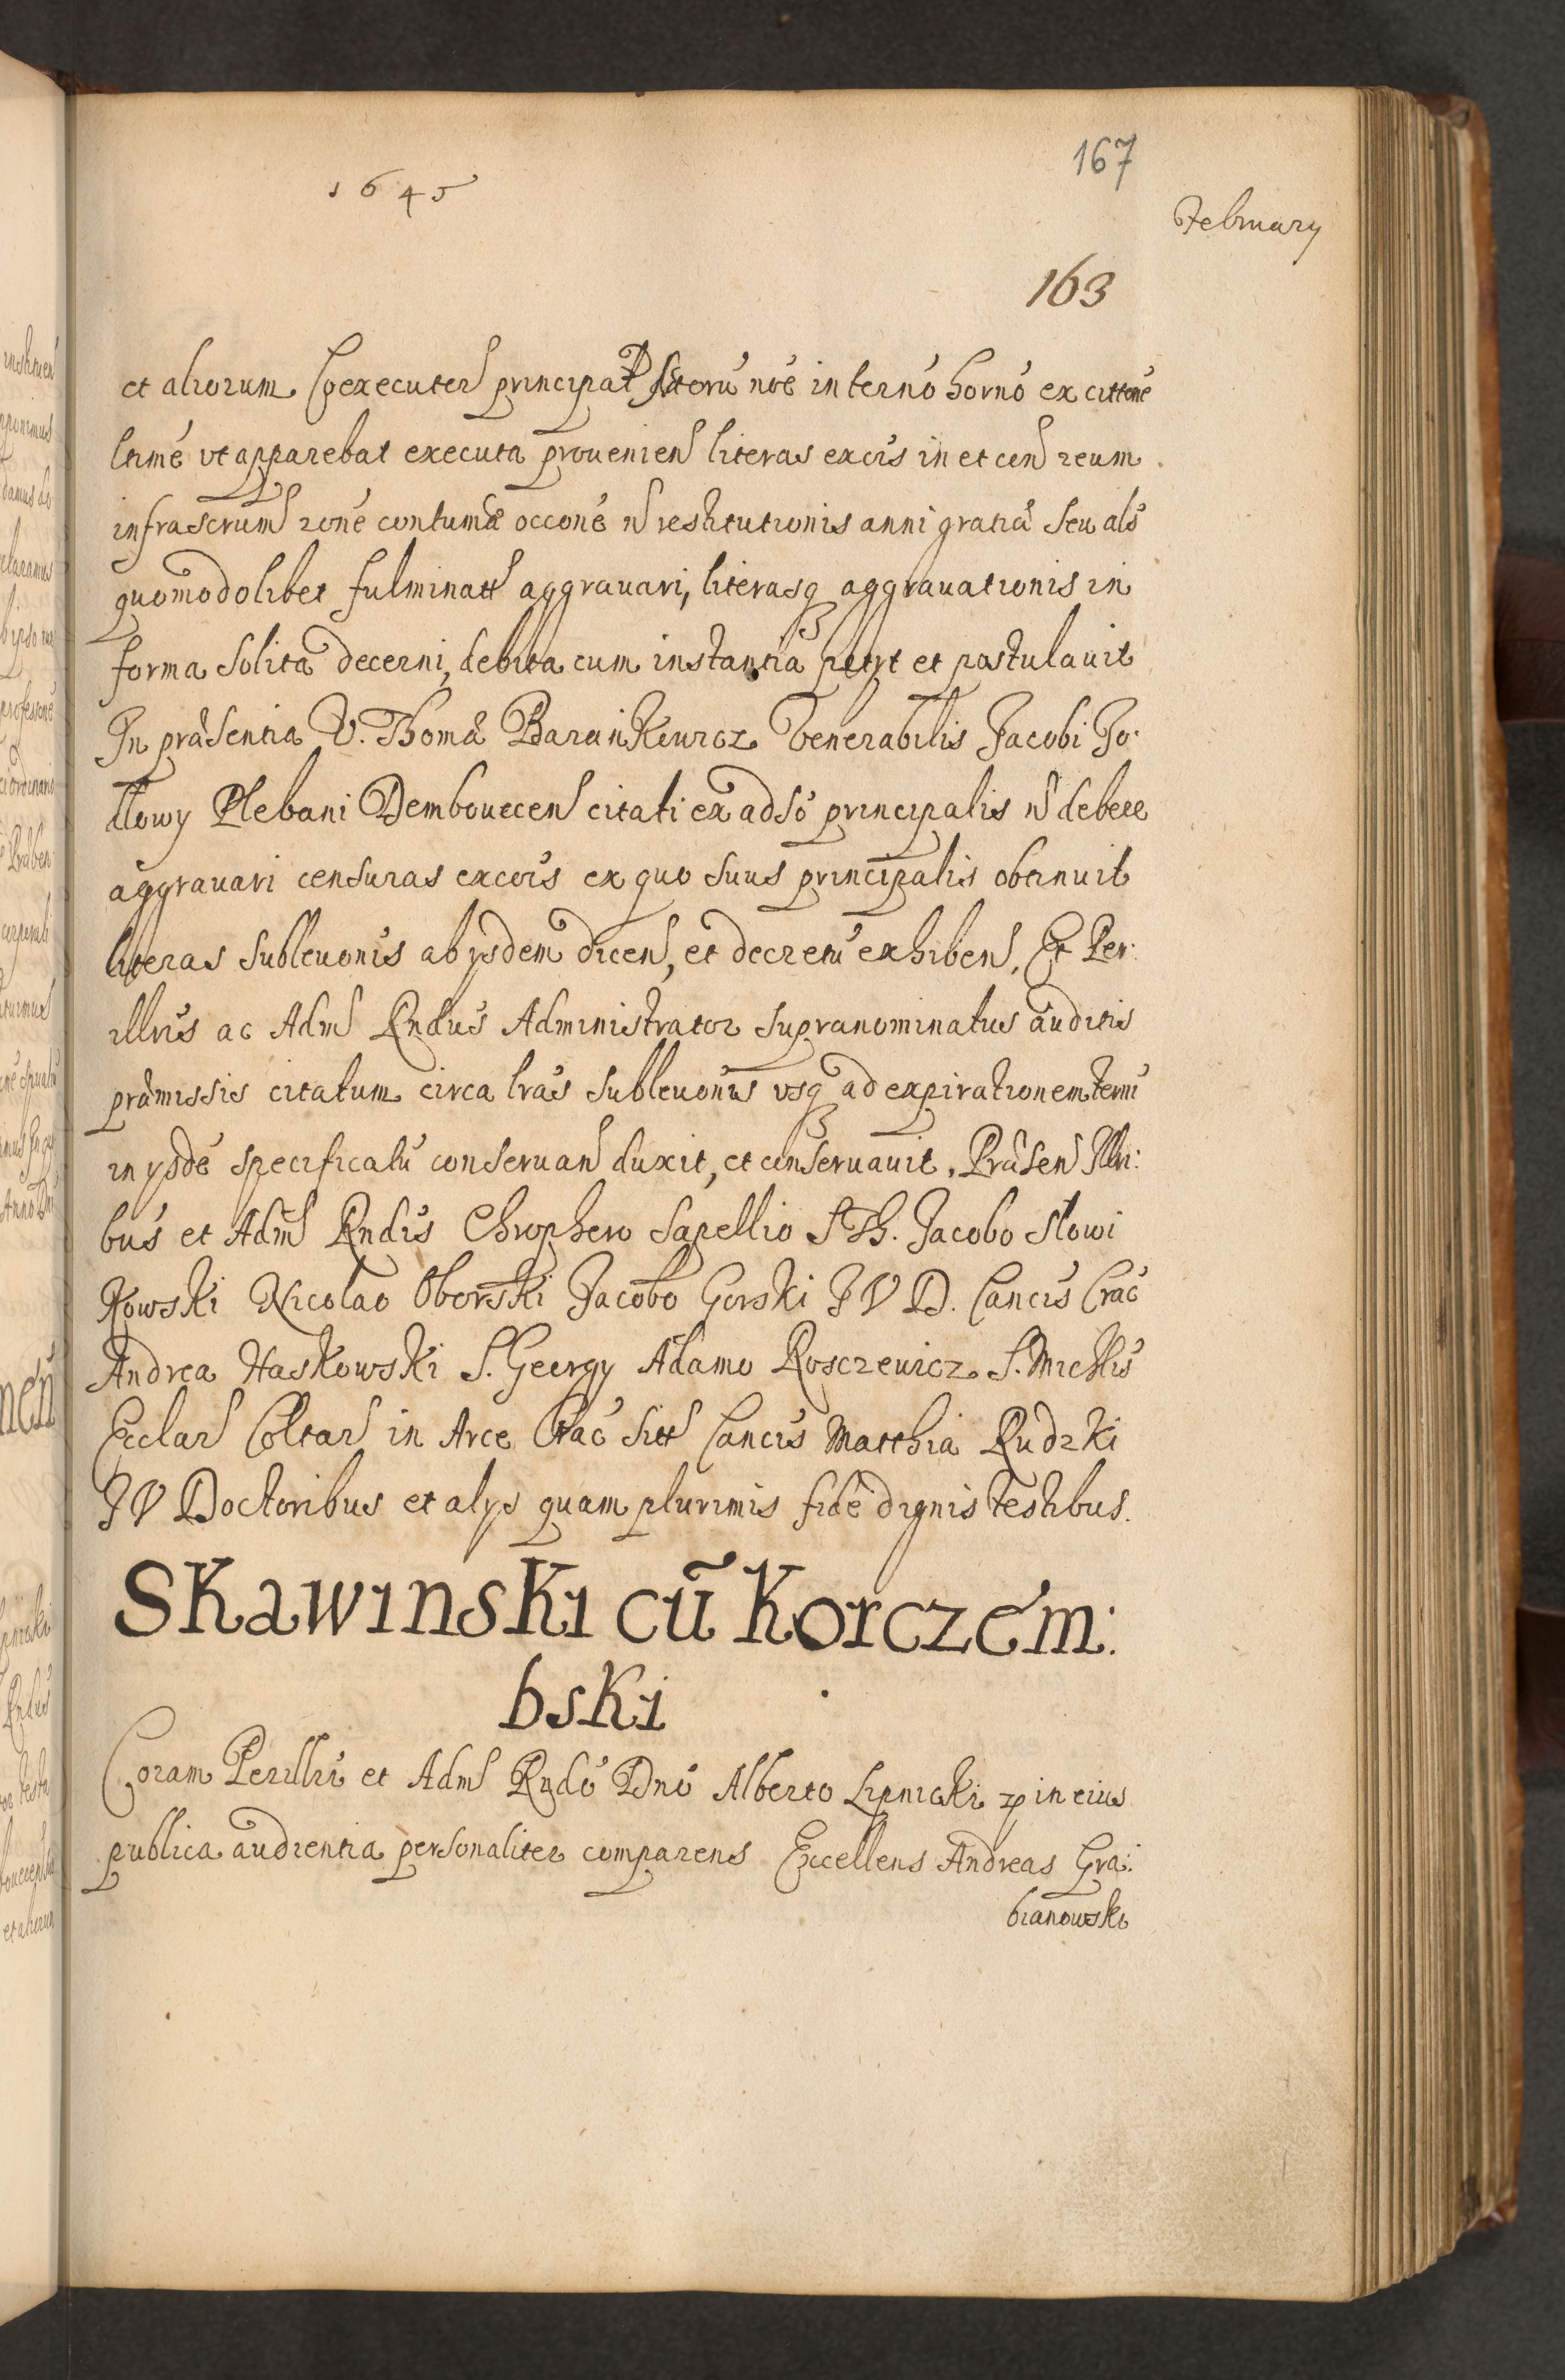 167
1645
February
163
et aliorum Coexecuter principal suorū nōe in termō hornō ex cittōne
ltimē ut apparebat executa prouenien literas excōis in et con reum
infrascrum rōne contumā occōne n restitutionis anni gratiæ seu als
quomodolibet fulminatt aggrauari, literasq aggrauationis in
forma solita decerni, debita cum instantia petyt et postulauit
In præsentia V. Thomæ Barankewicz Venerabilis Jacobi Jo:
dlowy Plebani Dembouecen citati ex adsō principalis n debere
aggrauari censuras excōis ex quo suus principalis obtinuit
literas subleuōnis ab ysdem dicen, et decretū exhiben, Et Per:
illris ac Adm Rndus Administrator supranominatus auditis
præmissis citatum circa lras subleuōnis usq ad expirationem termi
in ysdē specificatū conseruan duxit, et conseruauit. Præsen Illri:
bus et Adm Rndis Chrophero Sapellio S Th. Jacobo Slowi
kowski Nicolao Oborski Jacobo Gorski J V D. Cancis Crac
Andrea Haskowski S. Georgy Adamo Rosczewicz S. Michlis
Ecclar Coltar in Arce Crac sitt Cancis Matthia Rudzki
J V Doctoribus et alys quam plurimis fidē dignis testibus.
Skawinski cū Korczem:
bski
Coram Perillri et Adm Rndō Dnō Alberto Lipnicki p in eius
publica audientia personaliter comparens Excellens Andreas Gra:
bianowski